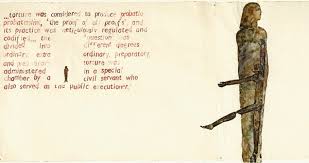 ...torture was considered to produce probatio
probatissima, "the proof of all proofs" and
its practice was meticulously regulated and
codified... the "question" as
divided into different degrees
ordinary, extra ordinary, preparatory
and torture was
administered in a special
chamber by a civil servant who
also served as the Public executioner.